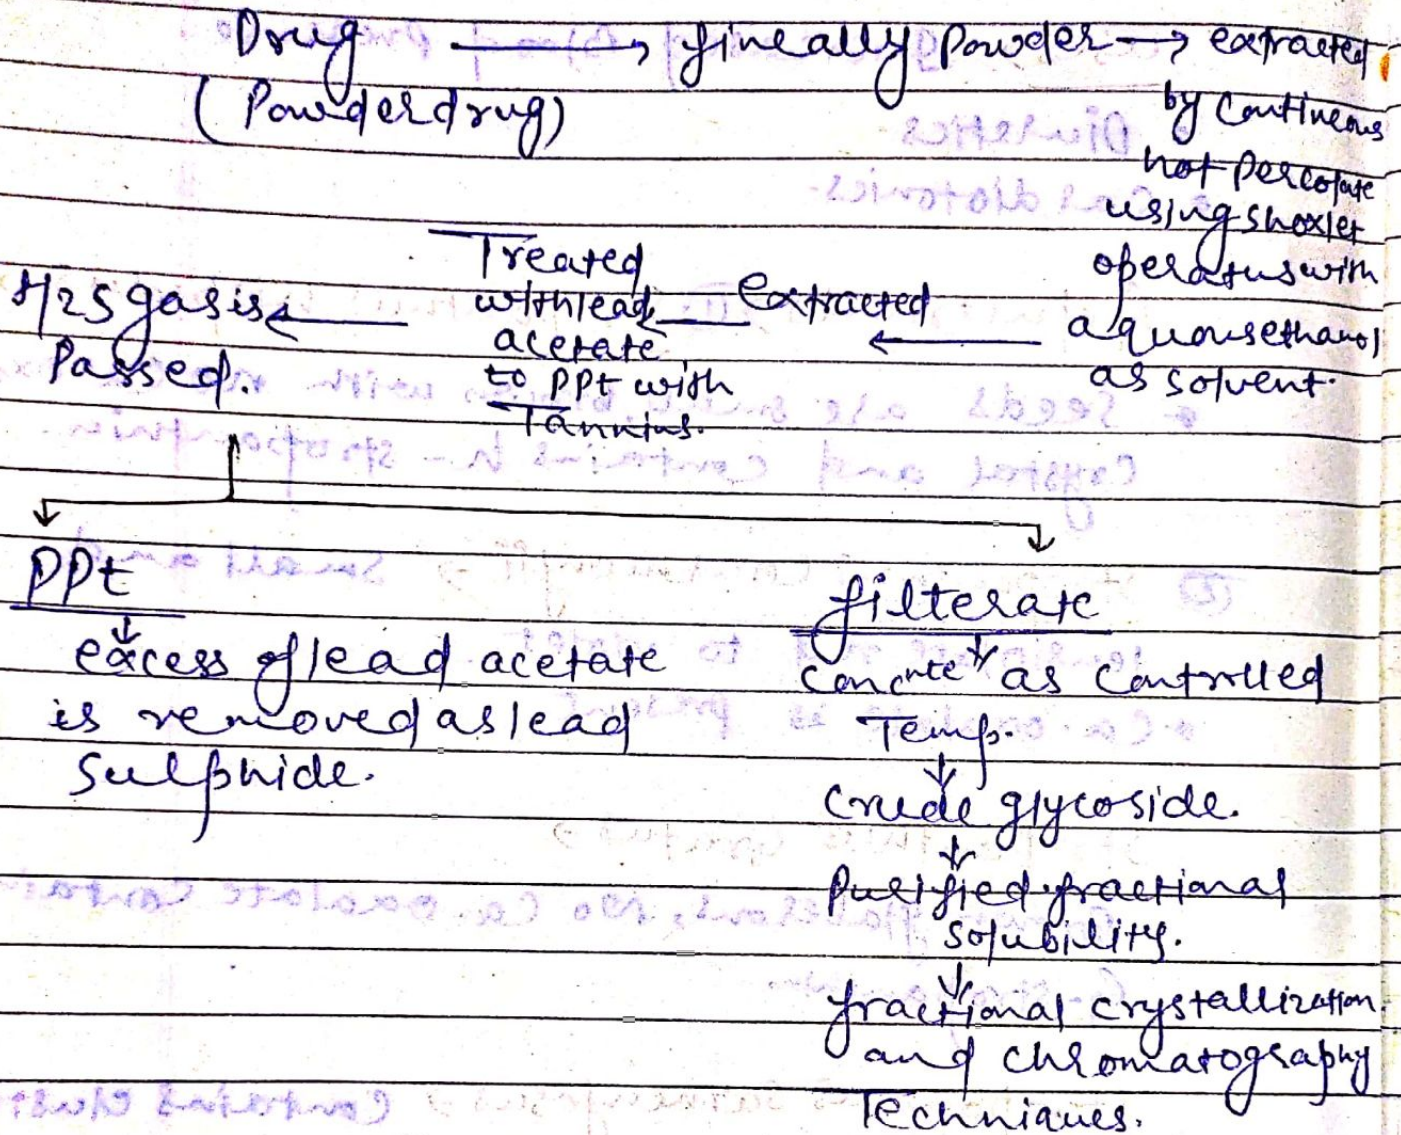 Drug → fineally Powder → extracted
(Powderdrug)
by Contineous
hot Percolate
using shoxlet
operatus with
aquous ethanol
as solvent.
← extracted ←
Treated
with lead
acetate
to PPt with
Tannins.
H2S gas is ←
Passed.
PPt
↓
excess of lead acetate
is removed as lead
Sulphide.
filterate
↓
as Controlled
Temp.
↓
Crude glycoside.
↓
Purified fractional
solubility.
↓
fractional crystallization
and chromatography
Techniques.